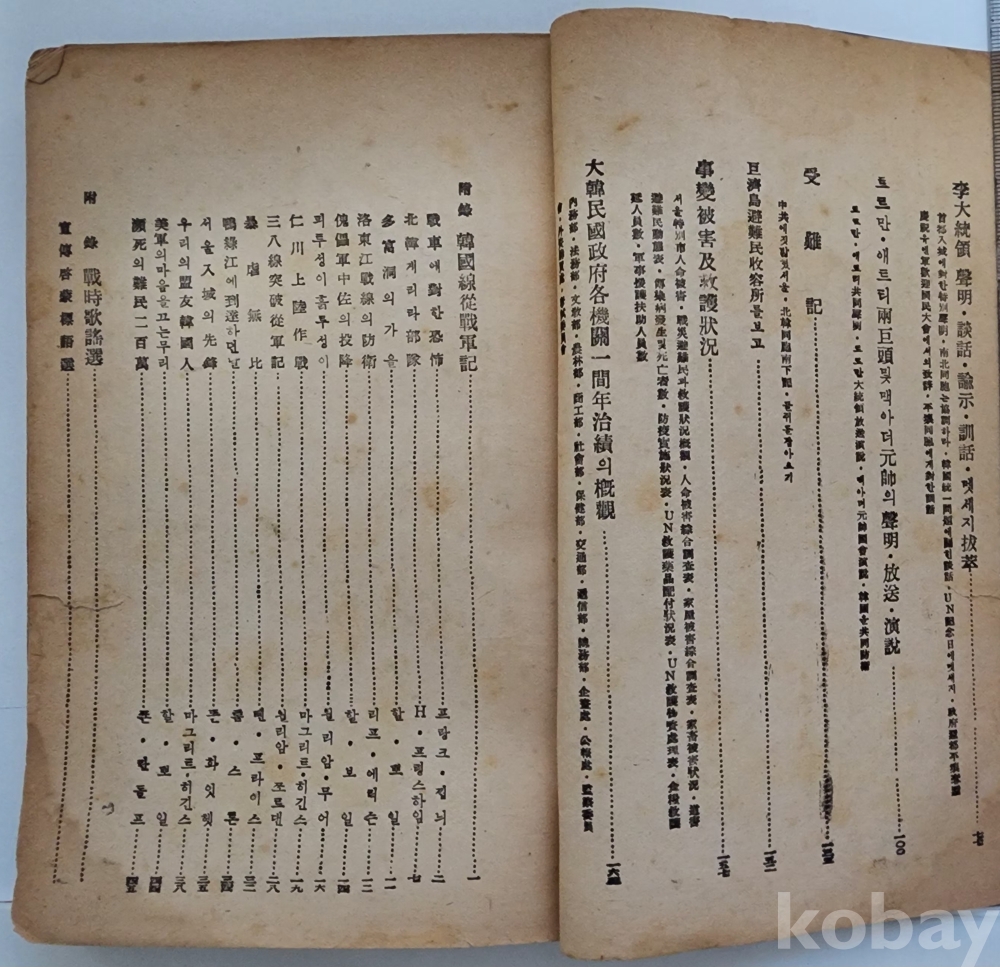 李大統領 聲明・談話・諭示・訓話・멧세지拔萃
首都入城에對한特別聲明・南北同胞는協調하라・韓國統一問題에關한談話・UN記念日에멧세지・政府還都平壤奪還
慶祝
트루만・애트리兩巨頭및맥아더元帥의聲明・放送・演說 一〇〇
트루만・애트리共同聲明・트루만大統領放送演說・맥아더元帥國會演說・韓國을共同防衛
受難記
中共에짓밟힌서울・北韓同胞南下記
巨濟島避難民收容所를보고 一五二
事變被害及救護狀況 一五七
서울特別市人命被害・戰災避難民과救護狀況概觀・人命被害綜合調査表・家屋被害綜合調査表・家畜被害狀況
避難民動態表・傳染病發生및死亡者數・防疫實施狀況表・UN救護藥品配付狀況表・UN救護物資處理表・金種救護
延人員數・軍事援護扶助人員數
大韓民國政府各機關一間年治績의概觀 一六四
內務部・法務部・文敎部・農林部・商工部・社會部・保健部・交通部・遞信部・總務處・企劃處・公報處・監察委員
附錄 韓國線從戰軍記 一
戰車에對한恐怖 프랑크・집늬 二
北韓게리라部隊 H・프링스하임 七
多富洞의가을 할・뽀일 一一
洛東江戰線의防衛 리프・에릭슨 一二
傀儡軍中佐의投降 할・보일 一四
피투성이흙투성이 윌리암・무어 一六
仁川上陸作戰 마그리트・히긴스 一九
三八線突破從軍記 윌리암・쪼르댄 二八
暴虐無比 뗀・프라이스 三二
鴨綠江에到達하던날 톰・스톤 三四
서울入城의先鋒 똔・화잇헷 三五
우리의盟友韓國人 마그리트・히긴스 三八
美軍의마음을끄는무리 할・뽀일 四四
瀕死의難民二百萬 똔・란돌프 四五
附錄 戰時歌謠選
宣傳啓蒙標語選
kobay